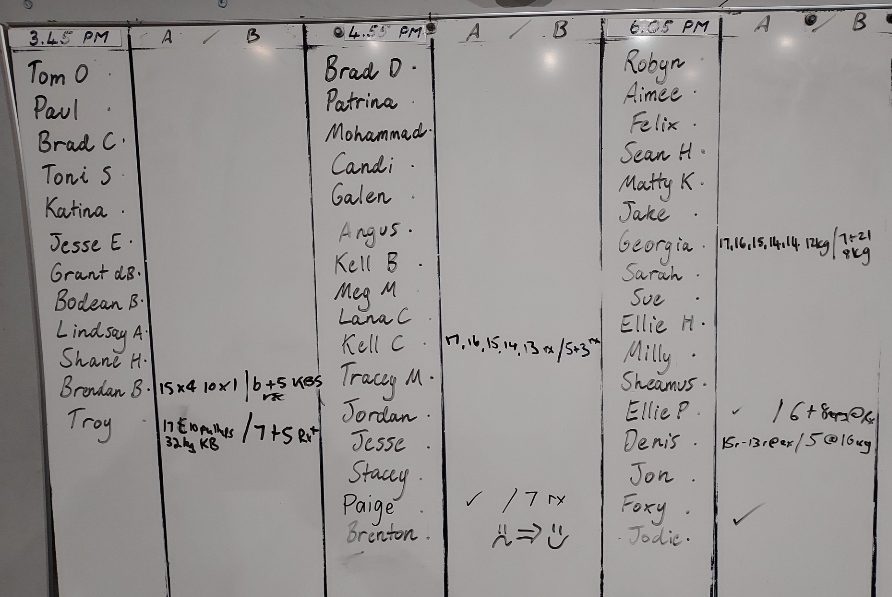 3.45 PM A / B
Tom O
Paul
Brad C.
Toni S
Katina
Jesse E.
Grant dB.
Bodean B.
Lindsay A.
Shane H.
Brendan B. 15 x 4 10 x 1 | 6 + 5 KBS
rx
Troy 17 E 10 pullups / 7 + 5 Rx+
32kg KB
4.55 PM A / B
Brad D.
Patrina
Mohammad.
Candi
Galen
Angus.
Kell B
Meg M
Lana C
Kell C 17, 16, 15, 14, 13 rx / 5+3 rx
Tracey M.
Jordan
Jesse
Stacey
Paige ✓ / 7 rx
Brenton
6.05 PM A / B
Robyn
Aimee
Felix
Sean H
Matty K.
Jake
Georgia 17, 16, 15, 14, 14 12kg / 7+21
8kg
Sarah
Sue
Ellie H.
Milly
Sheamus.
Ellie P ✓ / 6 + 8
Denis 15r-13r / 5 @ 16kg
Jon
Foxy ✓
Jodie.